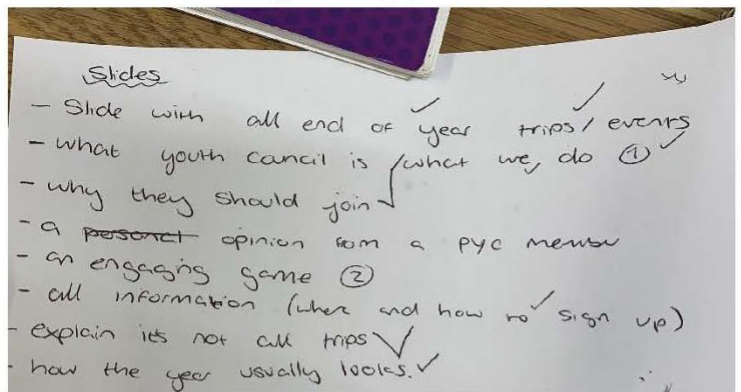 Slides
- Slide with all end of year trips / events
- what youth council is / what we do ①
- why they should join
- a personal opinion from a PYC member
- an engaging game ②
- all information (where and how to sign up)
- explain its not all trips
- how the year usually looks.